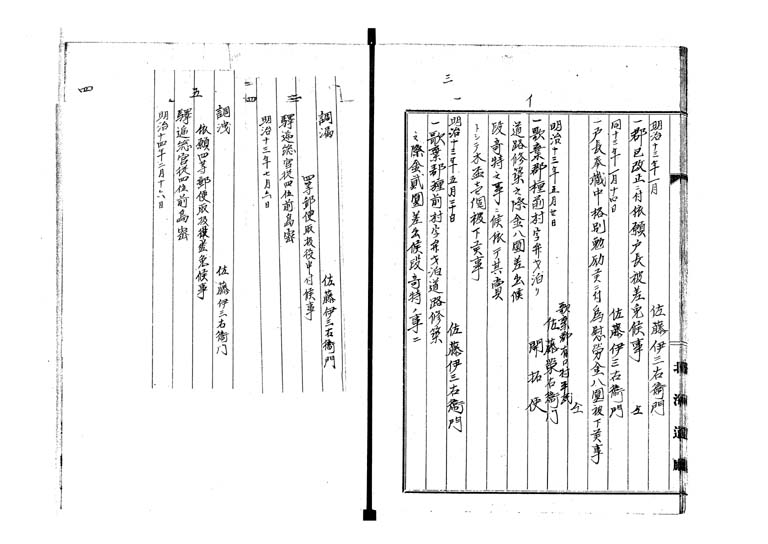 明治十三年一月
佐藤伊三右衛門
一郡区改正ニ付依願戸長被差免候事
同十三年一月十七日
佐藤伊三右衛門
一戸長奉職中格別勉励其ニ付為慰労金八圓被下賣事
明治十三年五月廿日
歌棄郡有戸村平民
佐藤栄右衛門
一歌棄郡種前村字弁才泊り
開拓使
道路修築之際金八圓差出候
段奇特之事ニ候依テ其賞
トシテ木盃壱個被下賣事
明治十三年五月三十日
佐藤伊三右衛門
一歌棄郡種前村字弁才泊道路修築
之際金貳圓差出候段奇特ノ事ニ
三
一
北海道廳
調漏
佐藤伊三右衛門
四等郵便取扱役申付候事
三
驛逓総官従四位前島密
四
明治十三年七月六日
調洩
佐藤伊三右衛門
依願四等郵便取扱役差免候事
五
驛逓総官従四位前島密
明治十四年二月十六日
四